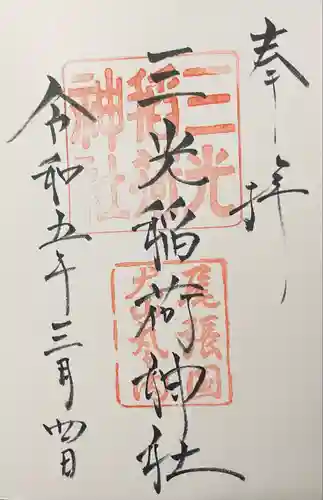 奉拝
三光稲荷神社
令和五年三月四日
三光
稲荷
神社
尾張国
犬山